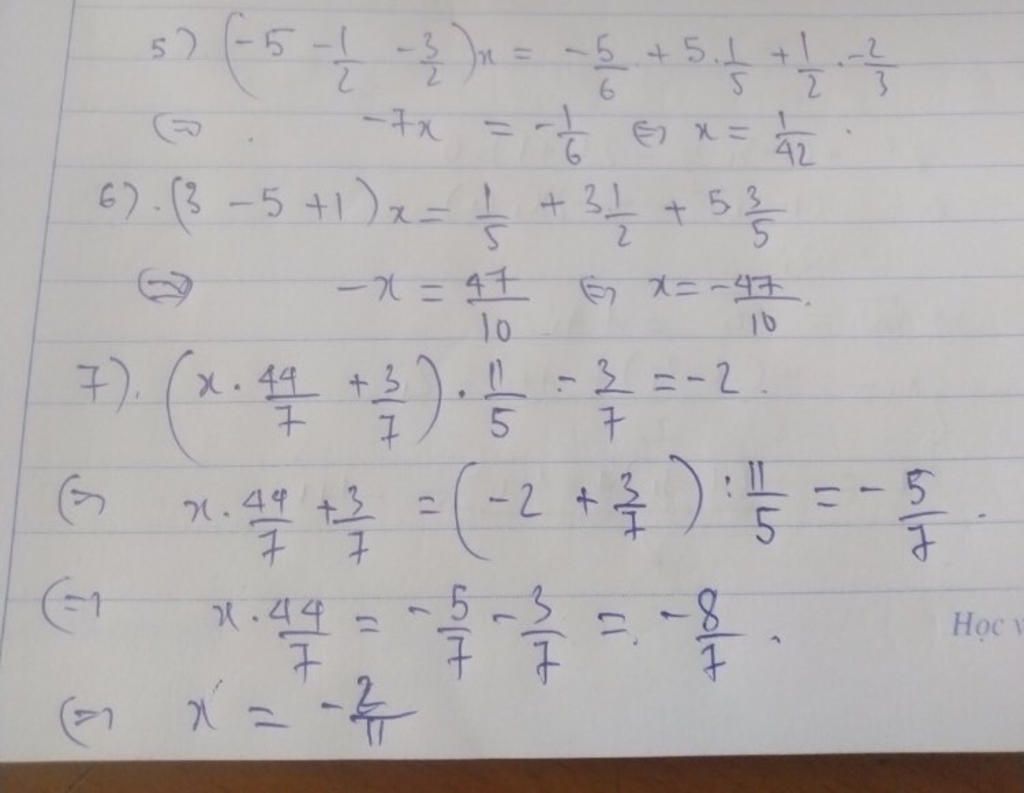 5) (-5 - 1/2 - 3/2)x = -5/6 + 5.1/5 + 1/2.-2/3
⇔ -7x = -1/6 ⇔ x = 1/42.
6). (3 - 5 + 1)x = 1/5 + 3 1/2 + 5 3/5
⇔ -x = 47/10 ⇔ x = -47/10.
7). (x . 44/7 + 3/7) . 11/5 - 3/7 = -2.
⇔ x . 44/7 + 3/7 = (-2 + 3/7) : 11/5 = -5/7.
⇔ x . 44/7 = -5/7 - 3/7 = -8/7.
Học v
⇔ x = -2/11